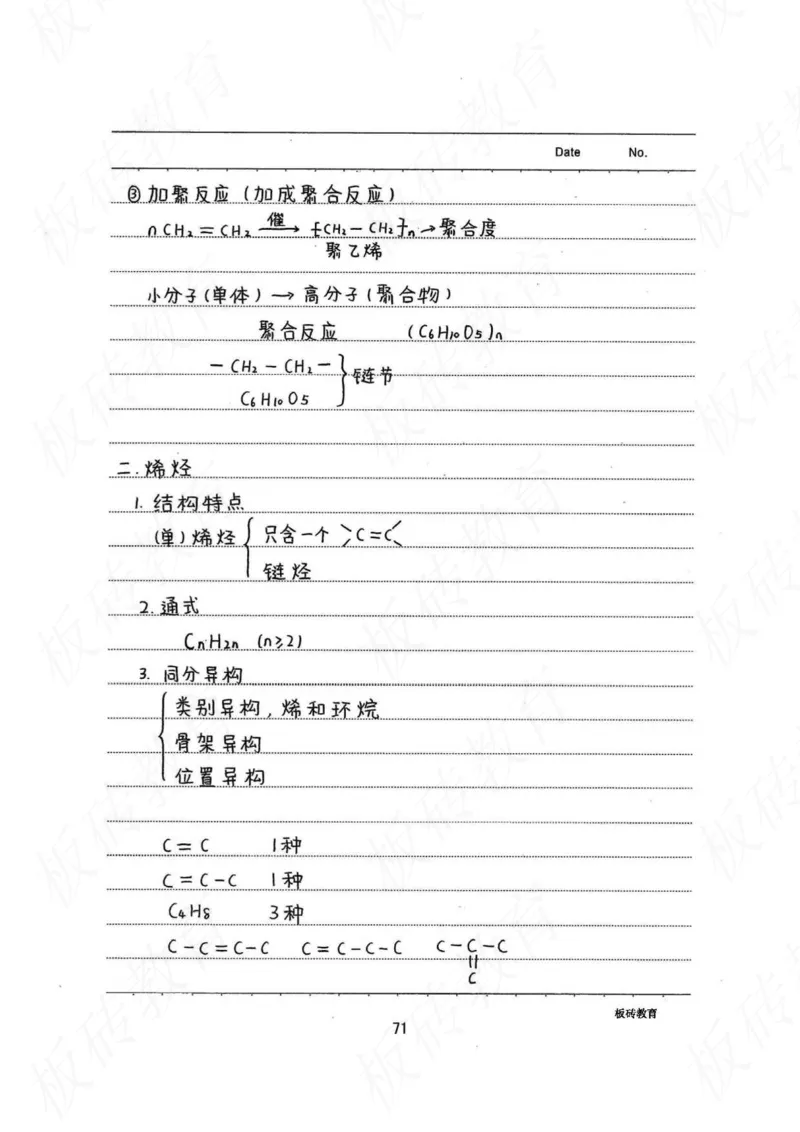 Date No.
③加聚反应（加成聚合反应）
nCH₂=CH₂ —催→ ⁅CH₂-CH₂⁆n→聚合度
聚乙烯
小分子(单体)→高分子(聚合物)
聚合反应 (C₆H₁₀O₅)n
-CH₂-CH₂- }链节
C₆H₁₀O₅
二.烯烃
1. 结构特点
(单)烯烃 { 只含一个 >C=C<
链烃
2.通式
CnH2n (n≥2)
3. 同分异构
类别异构,烯和环烷
骨架异构
位置异构
C=C 1种
C=C-C 1种
C₄H₈ 3种
C-C=C-C C=C-C-C C-C-C
||
C
板砖教育
71